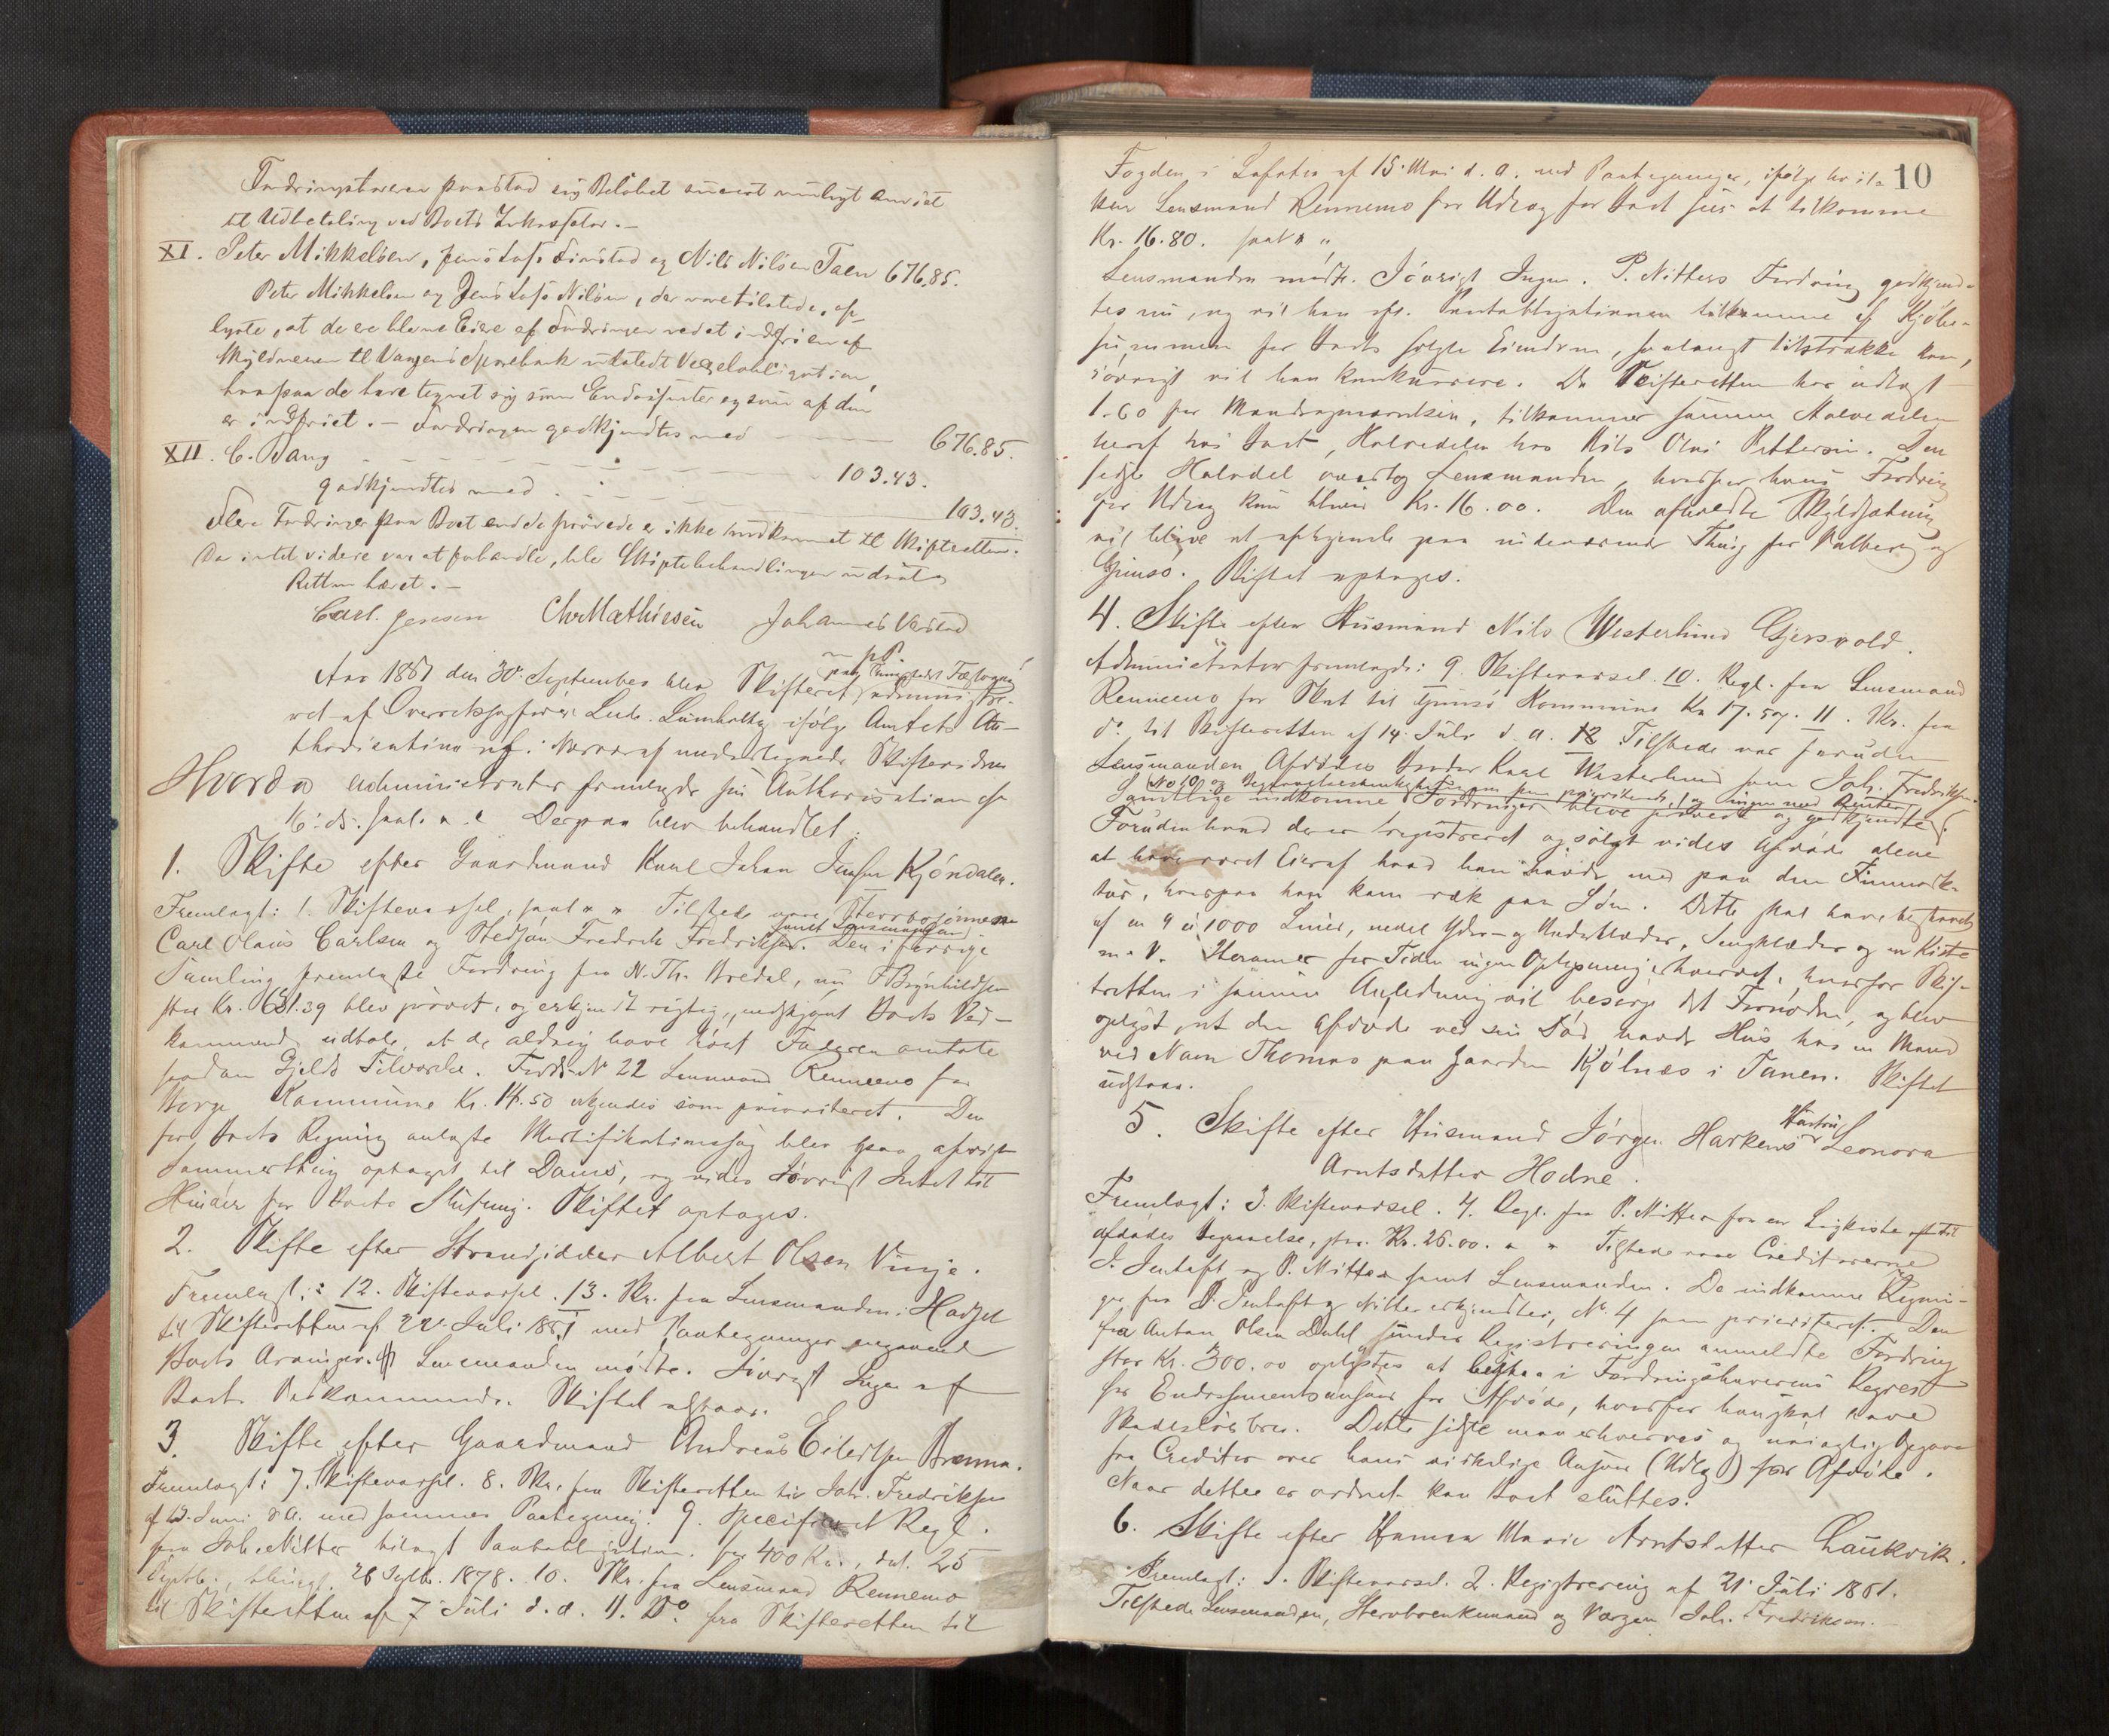 Fordringshaveren paastod sig Beløbet snarest muligt anvist
til Udbetaling ved Boets Inkassator. -
XI. Peter Mikkelsen, Jens Loss Simstad og Nils Nilsen Taen 676.85.
Peter Mikkelsen og Jens Loss Nilsen, der vare tilstede, op-
lyste, at de ere blevne Eiere af Fordringen ved at indfri en af
til Vaagens Sparebank udstedt Vexelobligation,
hvorpaa de have tegnet sig som Endossenter og som af dem
er indfriet. - Fordringen godkjendtes med - - - 676.85.
XII. C. Dang - - - 103.43.
godkjendtes med - - - 103.43.
Flere Fordringer paa Boet end de prøvede er ikke indkommet til Skifteretten.
Da intet videre var at forhandle, blev Skiftebehandlingen udsat og
Retten hævet. -
Carl. Jensen Chr Mathiesen Johannes Vestad
Aar 1881 den 30 September blev Skifteret
paa Thingstedet
administre-
ret af Overretssagfører Lumholtz ifølge Amtets Au-
thorisation af. Nærværet af undertegnede Skiftevidner
Hvorda Administrator fremlagde sin Authorisation af
16 ds. saal. Derpaa blev behandlet:
1. Skifte efter Gaardmand Karl Johan Kjøndalen.
Fremlagt: 1. Skiftevarsel, saal. Tilstede vare Stervbosønnerne
samt Lensmanden
Carl Olaus Carlsen og Stedsøn Fredrik Fredriksen. Den i forrige
Samling fremlagte Fordring fra N. Th. Bredal, nu Brynhildsen
stor Kr. 39 blev prøvet, og erkjendt rigtig, uagtet Boets Ved-
kommende udtale, at de aldrig have hørt Faderen omtale
saadan Gjelds Tilværelse. Fordr. No 22 Lensmand Rennemo for
Borge Kommune Kr. 14.50 erkjendes som prioriteret. Den
for Boets Regning anlagte Mortifikationssag blev paa afvigte
Sommerthing optaget til Doms, og vides iøvrigt Intet til
Hinder for Boets Slutning. Skiftet optages.
2. Skifte efter Strandsidder Albert Olsen Vinje.
Fremlagt: 12. Skiftevarsel. 13. Skr. fra Lensmanden i Hadsel
til Skifteretten af 22 Juli 1881 med Paategninger angaaende
Boets Arvinger. Lensmanden mødte. Iøvrigt Ingen af
Boets Vedkommende. Skiftet udstaar.
3. Skifte efter Gaardmand Andreas Eilertsen Brenna.
Fremlagt: 7. Skiftevarsel. 8. Skr. fra Skifteretten til Joh. Fredriksen
af 13 Juni d.a. med sammes Paategning. 9. Specificeret Regl.
fra Joh. Nitter bilagt Pantobligation for 400 Kr., dat. 25
Septbr., thingl. 28 Septbr. 1878. 10. Skr. fra Lensmand Rennemo
til Skifteretten af 7 Juli d.a. 11. Do fra Skifteretten til
10
Fogden i Lofoten af 15 Mai d.a. med Paategninger, ifølge hvil-
ken Lensmand Rennemo for Udlæg for Boet sees at tilkomme
Kr. 16.80. saal.
Lensmanden mødte. Iøvrigt Ingen. P. Nitters Fordring godkjend-
tes nu, og vil han efter Pantobligationen tilkomme af Kjøbe-
summen for Boets solgte Eiendom, saalangt tilstrække kan,
iøvrigt vil han konkurrere. Da Skifteretten har udlagt
1.60 for tilkommer samme Halvedelen
heraf hos Boet, Halvedelen hos Nils Olai Pettersen. Den
sidste Halvdel overtog Lensmanden, hvorfor hans Fordring
for Udlæg kun bliver Kr. 16.00. Den afholdte Skyldsætning
vil blive at afhjemle paa indeværende Thing for Valberg og
Gimsø. Skiftet optages.
4. Skifte efter Husmand Nils Westerlund Gjersvold.
Administrator fremlagde: 9. Skiftevarsel. 10. Regl. fra Lensmand
Rennemo for Skat til Gimsø Kommune Kr. 17.50. 11. Skr. fra
do til Skifteretten af 14 Juli d.a. 12. Tilstede var foruden
Lensmanden Afdødes Broder Karl Westerlund samt Joh. Fredriksen.
No 10 og Begravelsesomkostninger som prioriterede, og ingen med Renter
Samtlige indkomne Fordringer bleve prøvede og godkjendte.
Foruden hvad der er registreret og solgt vides Afdøde alene
at have været Eier af hvad han havde med paa den Finmark-
tur, hvorpaa han kom væk paa Søen. Dette skal have bestaaet
af en 4 a 1000 Liner, endel Yder- og Underklæder, Sengklæder og en Kiste
m. V. Herom er for Tiden ingen Oplysning erhvervet, hvorfor Skif-
teretten i samme Anledning vil besørge det Fornødne, og blev
oplyst, at den Afdøde ved sin Død havde Hus hos en Mand
ved Navn Thomas paa Gaarden Kjølnæs i Tanen. Skiftet
udstaar.
5. Skifte efter Husmand Jørgen Harkens
Hustru
Leonora
Arntsdatter Hodne.
Fremlagt: 3. Skiftevarsel. 4. Regl. fra P. Nitter for en Ligkiste til
afdødes Begravelse, stor Kr. 26.00. Tilstede vare Creditorerne
J. Jentoft og P. Nitter samt Lensmanden. De indkomne Regnin-
ger fra J. Jentoft og Nitter erkjendtes, No. 4 som prioriteret. Den
fra Anton Olsen Dahl under Registreringen anmeldte Fordring
stor Kr. 300.00 oplystes at bestaa i Fordringshaverens Regres
for Endossementsansvar for Afdøde, hvorfor han skal have
Skadesløsbrev. Dette sidste maa erhverves og nøiagtig Opgave
fra Creditor over hans virkelige Ansvar (Udlæg) for Afdøde.
Naar dette er ordnet kan Boet sluttes.
6. Skifte efter Hanna Marie Arntsdatter Laukvik.
Fremlagt: 1. Skiftevarsel. 2. Registrering af 21 Juli 1881.
Tilstede Lensmanden, Stervboenkemand og Værgen Joh. Fredriksen. -